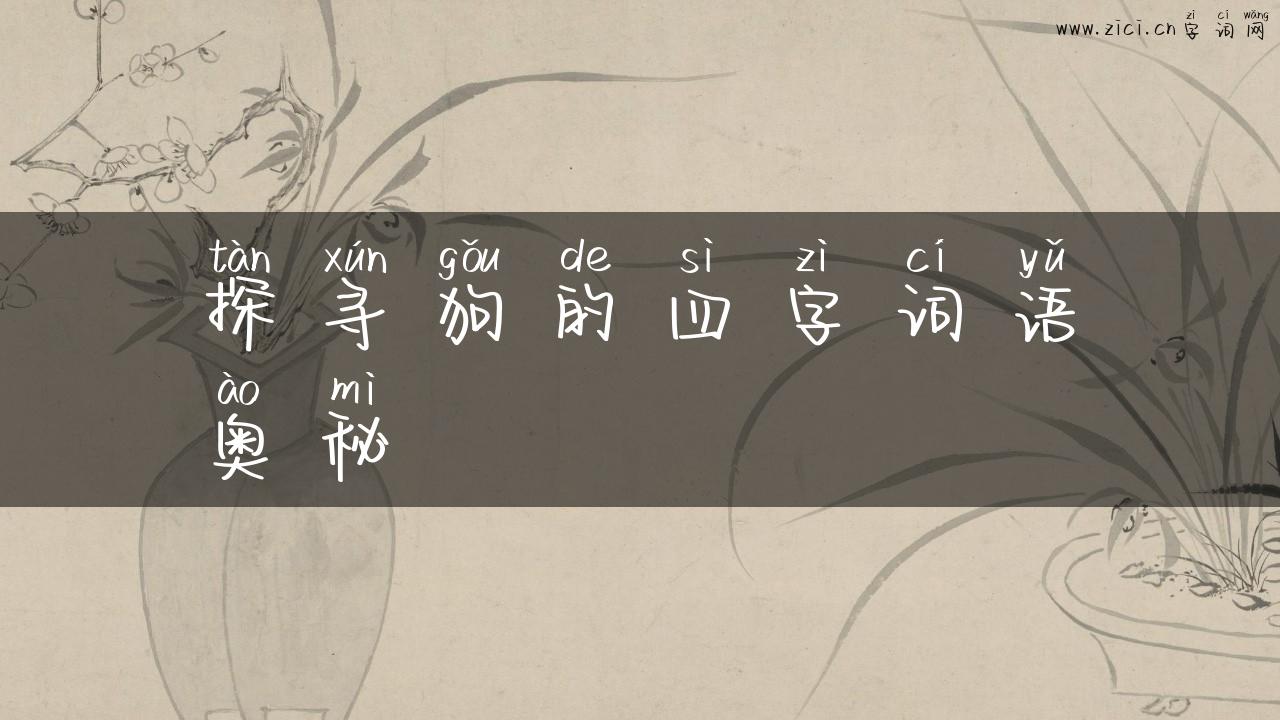 zì cí wǎng
www.zici.cn 字词网
tàn xún gǒu de sì zì cí yǔ
探寻狗的四字词语
ào mì
奥秘